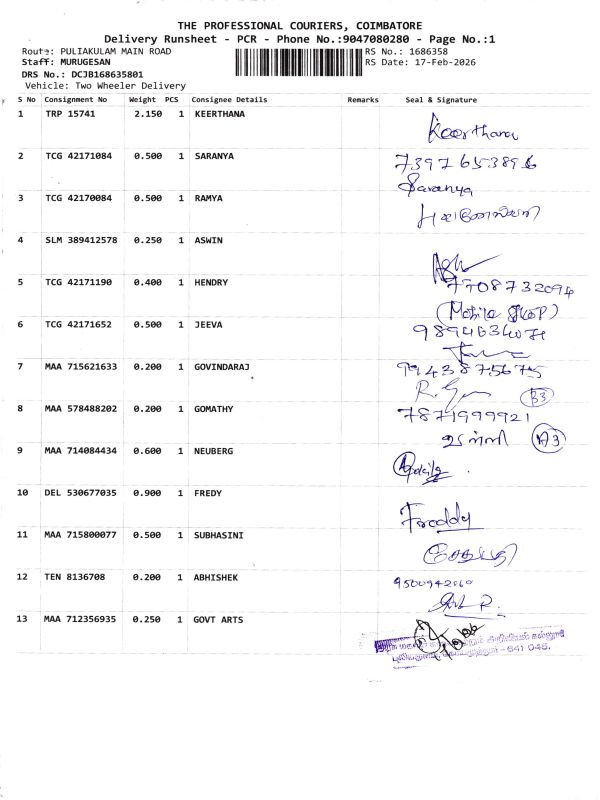 THE PROFESSIONAL COURIERS, COIMBATORE
Delivery Runsheet - PCR - Phone No.:9047080280 - Page No.:1
Route: PULIAKULAM MAIN ROAD RS No.: 1686358
Staff: MURUGESAN RS Date: 17-Feb-2026
DRS No.: DCJB168635801
Vehicle: Two Wheeler Delivery
S No Consignment No Weight PCS Consignee Details Remarks Seal & Signature
1 TRP 15741 2.150 1 KEERTHANA
Keerthana
2 TCG 42171084 0.500 1 SARANYA
7397653896
Saranya
3 TCG 42170084 0.500 1 RAMYA
4 SLM 389412578 0.250 1 ASWIN
5 TCG 42171190 0.400 1 HENDRY
7708732094
6 TCG 42171652 0.500 1 JEEVA
(Mobile SHOP)
9894634071
7 MAA 715621633 0.200 1 GOVINDARAJ
9943875675
B3
8 MAA 578488202 0.200 1 GOMATHY
7871999921
A3
9 MAA 714084434 0.600 1 NEUBERG
10 DEL 530677035 0.900 1 FREDY
Freddy
11 MAA 715800077 0.500 1 SUBHASINI
12 TEN 8136708 0.200 1 ABHISHEK
9500942060
13 MAA 712356935 0.250 1 GOVT ARTS
- 641 045.